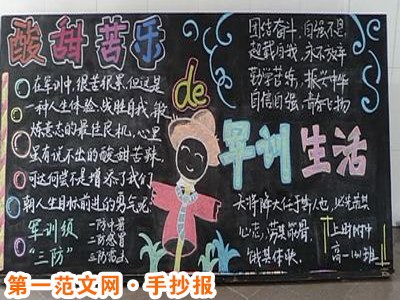 酸甜苦乐
de
军训生活
在军训中,很苦很累,但这是
一种人生体验,战胜自我,锻
炼意志的最佳良机,心里
虽有说不出的酸甜苦辣,
可这何尝不是增添了我们
朝人生目标前进的勇气呢
军训级
"三防"
一防中暑
二防感冒
三防
团结奋斗,自强不息
超越自我,永不放弃
勤学苦练,振兴中华
自信自强,青春飞扬
天将降大任于斯人也,必先苦其
心志,劳其筋骨,
饿其体肤。
上附中
高一
第一范文网·手抄报